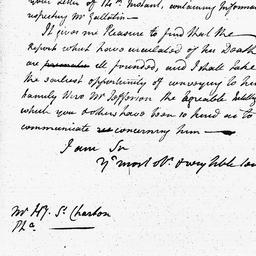 your letter of 14th Instant, containing Informa
respecting Mr Gallatin —
It gives me Pleasure to find that the
Report which have circulated of his Death
are ill founded, and I shall take
the earliest opportunity of conveying to his
family thro' Mr Jefferson the agreeable Intellig
which you & others have been so kind as to
communicate concerning him —
I am Sir
Yr most Obt. & very hble
Mr Hy. St. Charlon
Pha.